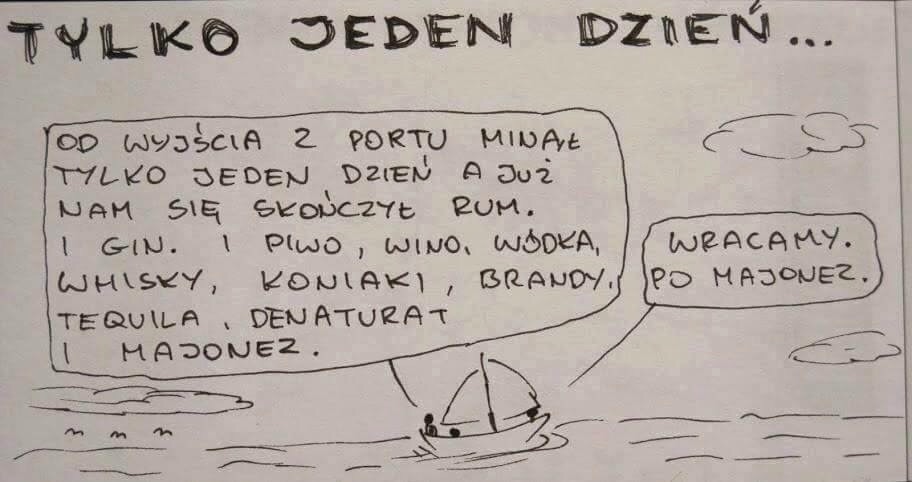 TYLKO JEDEN DZIEŃ...
OD WYJŚCIA Z PORTU MINĄŁ
TYLKO JEDEN DZIEŃ A JUŻ
NAM SIĘ SKOŃCZYŁ RUM.
I GIN. I PIWO, WINO, WÓDKA,
WHISKY, KONIAKI, BRANDY,
TEQUILA, DENATURAT
I MAJONEZ.
WRACAMY.
PO MAJONEZ.